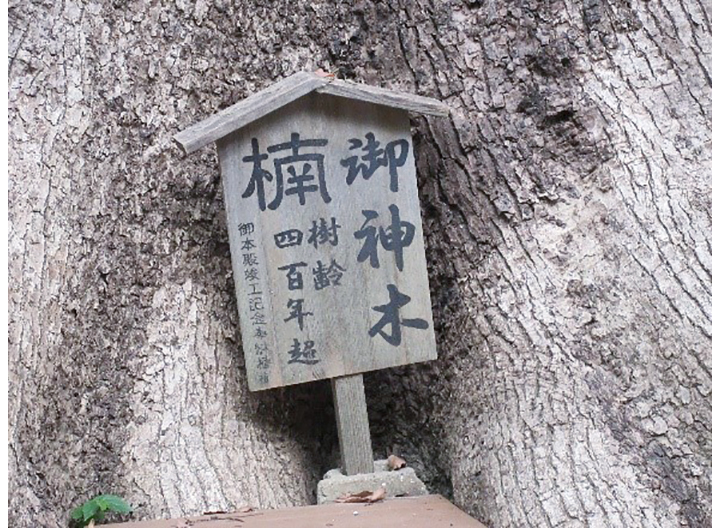 御神木
楠
樹齢
四百年超
御本殿竣工記念